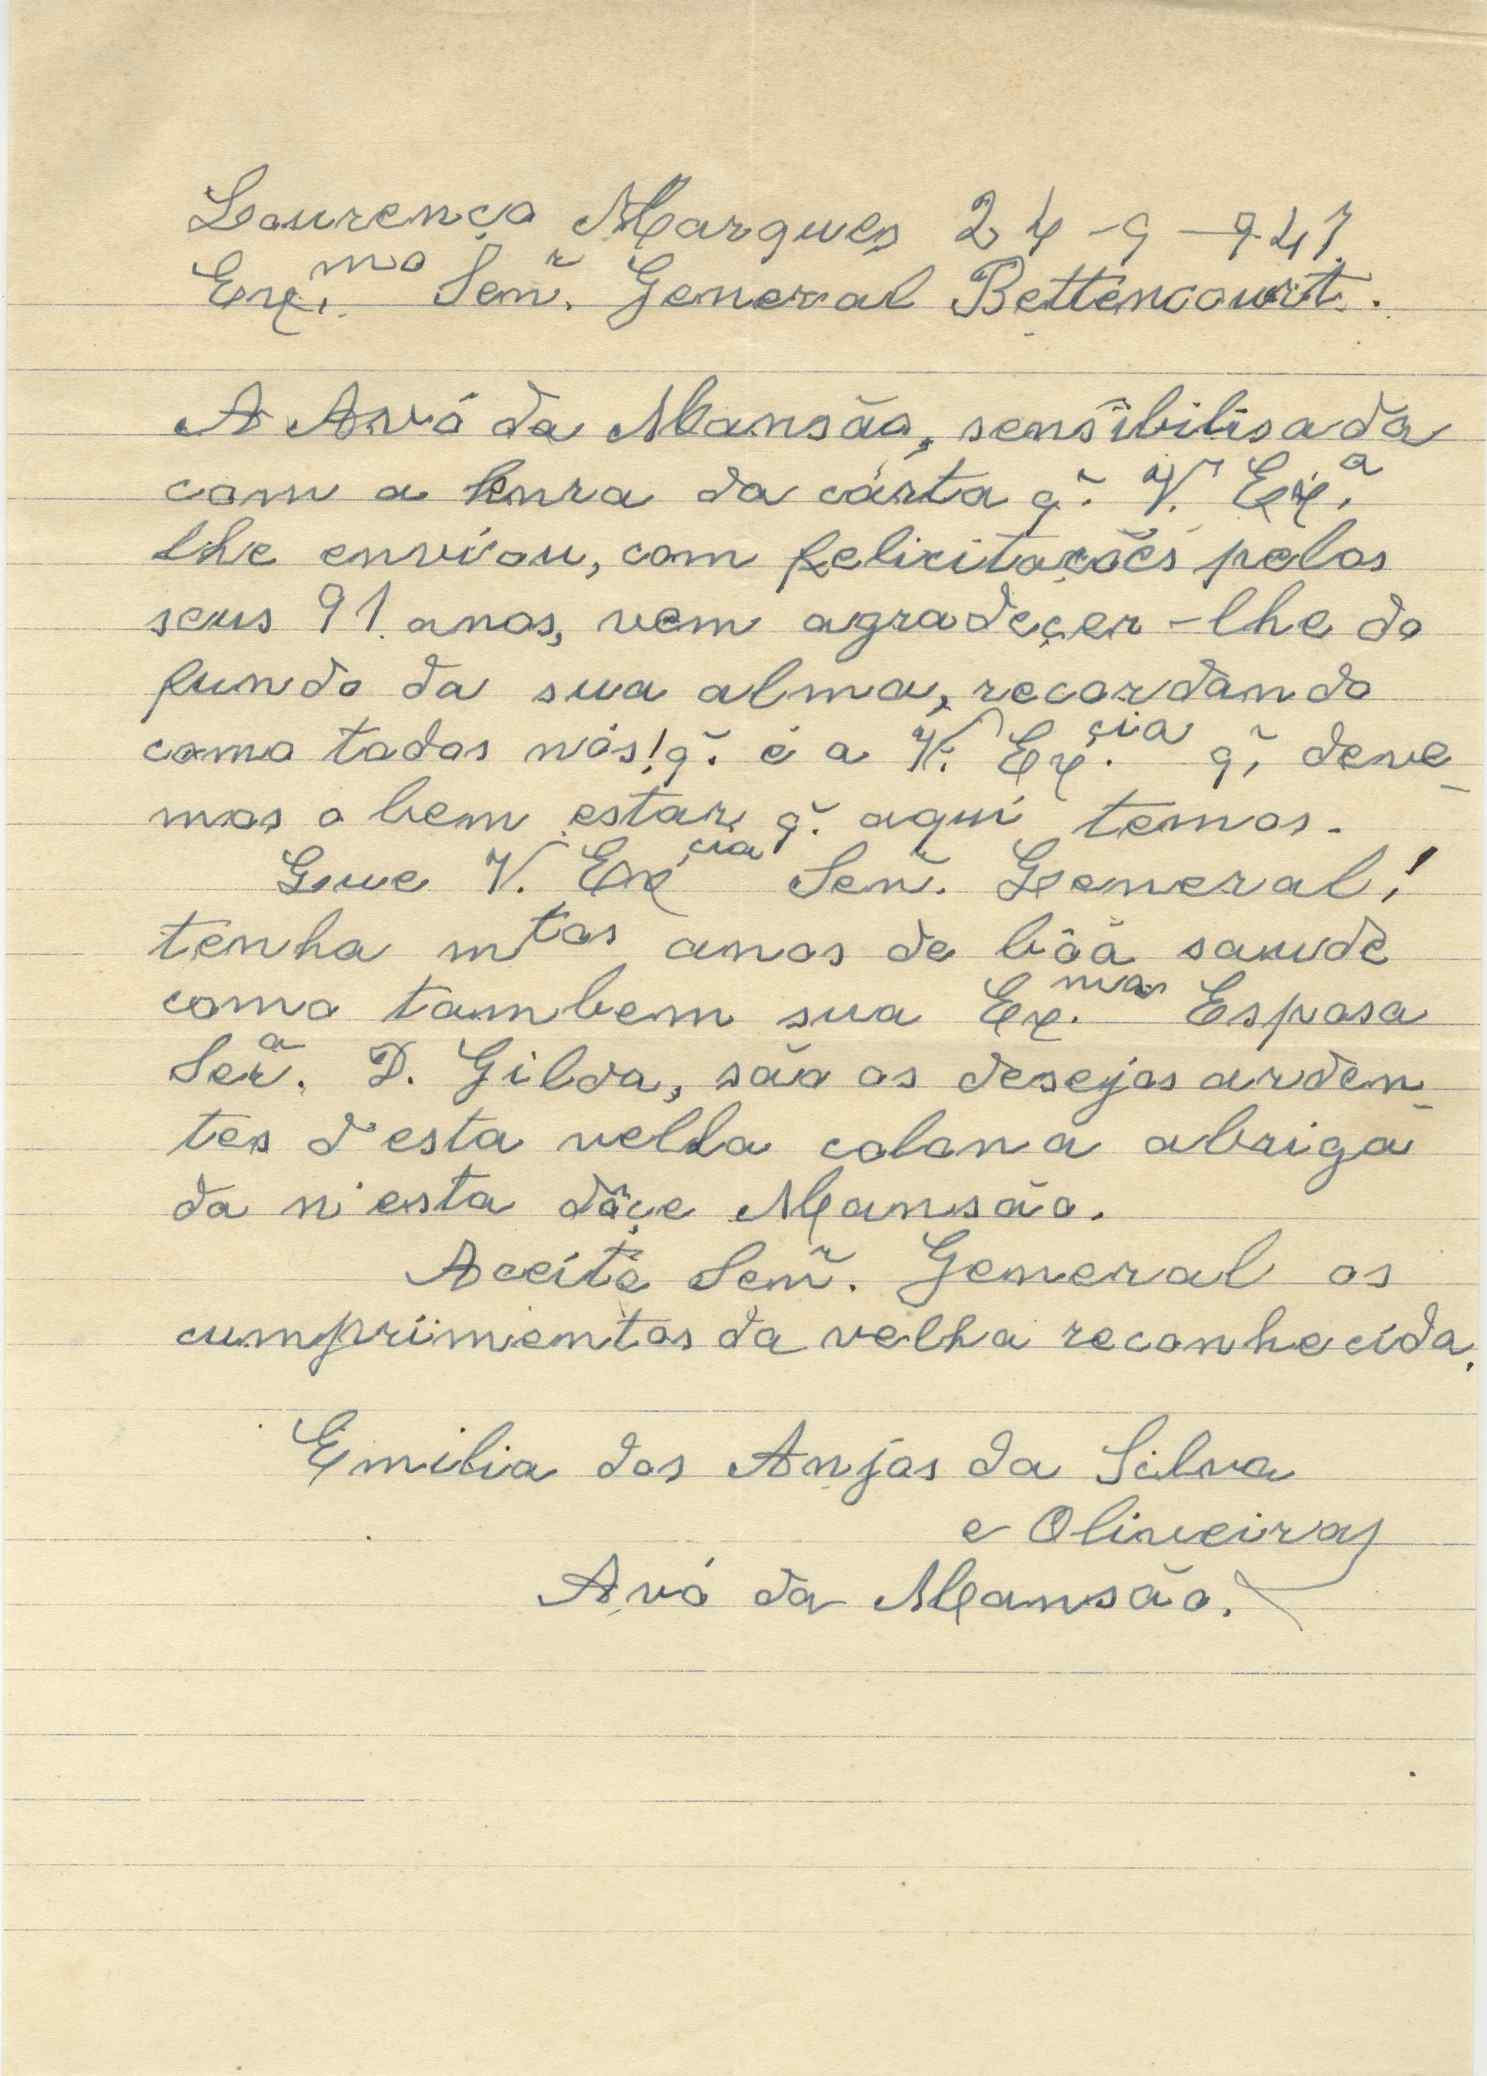 Lourenço Marques 24-9-947
Ex.mo Senr. General Bettencourt.
A Avó da Mansão, sensibilisada
com a honra da cárta q~. V. Ex.a
lhe enviou, com felicitações pelos
seus 91 anos, vem agradeçer-lhe do
fundo da sua alma, recordando
como todos nós! q~. é a V. Ex.cia q~, deve-
mos o bem estar q~. aqui temos.
Que V. Excia Senr. General!
tenha mtos anos de bôa saude
como tambem sua Ex.ma Esposa
Sera. D. Gilda, são os desejos arden-
tes d'esta velha colona abriga
da n'esta dôçe Mansão.
Aceite Senr. General os
cumprimentos da velha reconhecida.
Emilia dos Anjos da Silva
e Oliveira
Avó da Mansão.